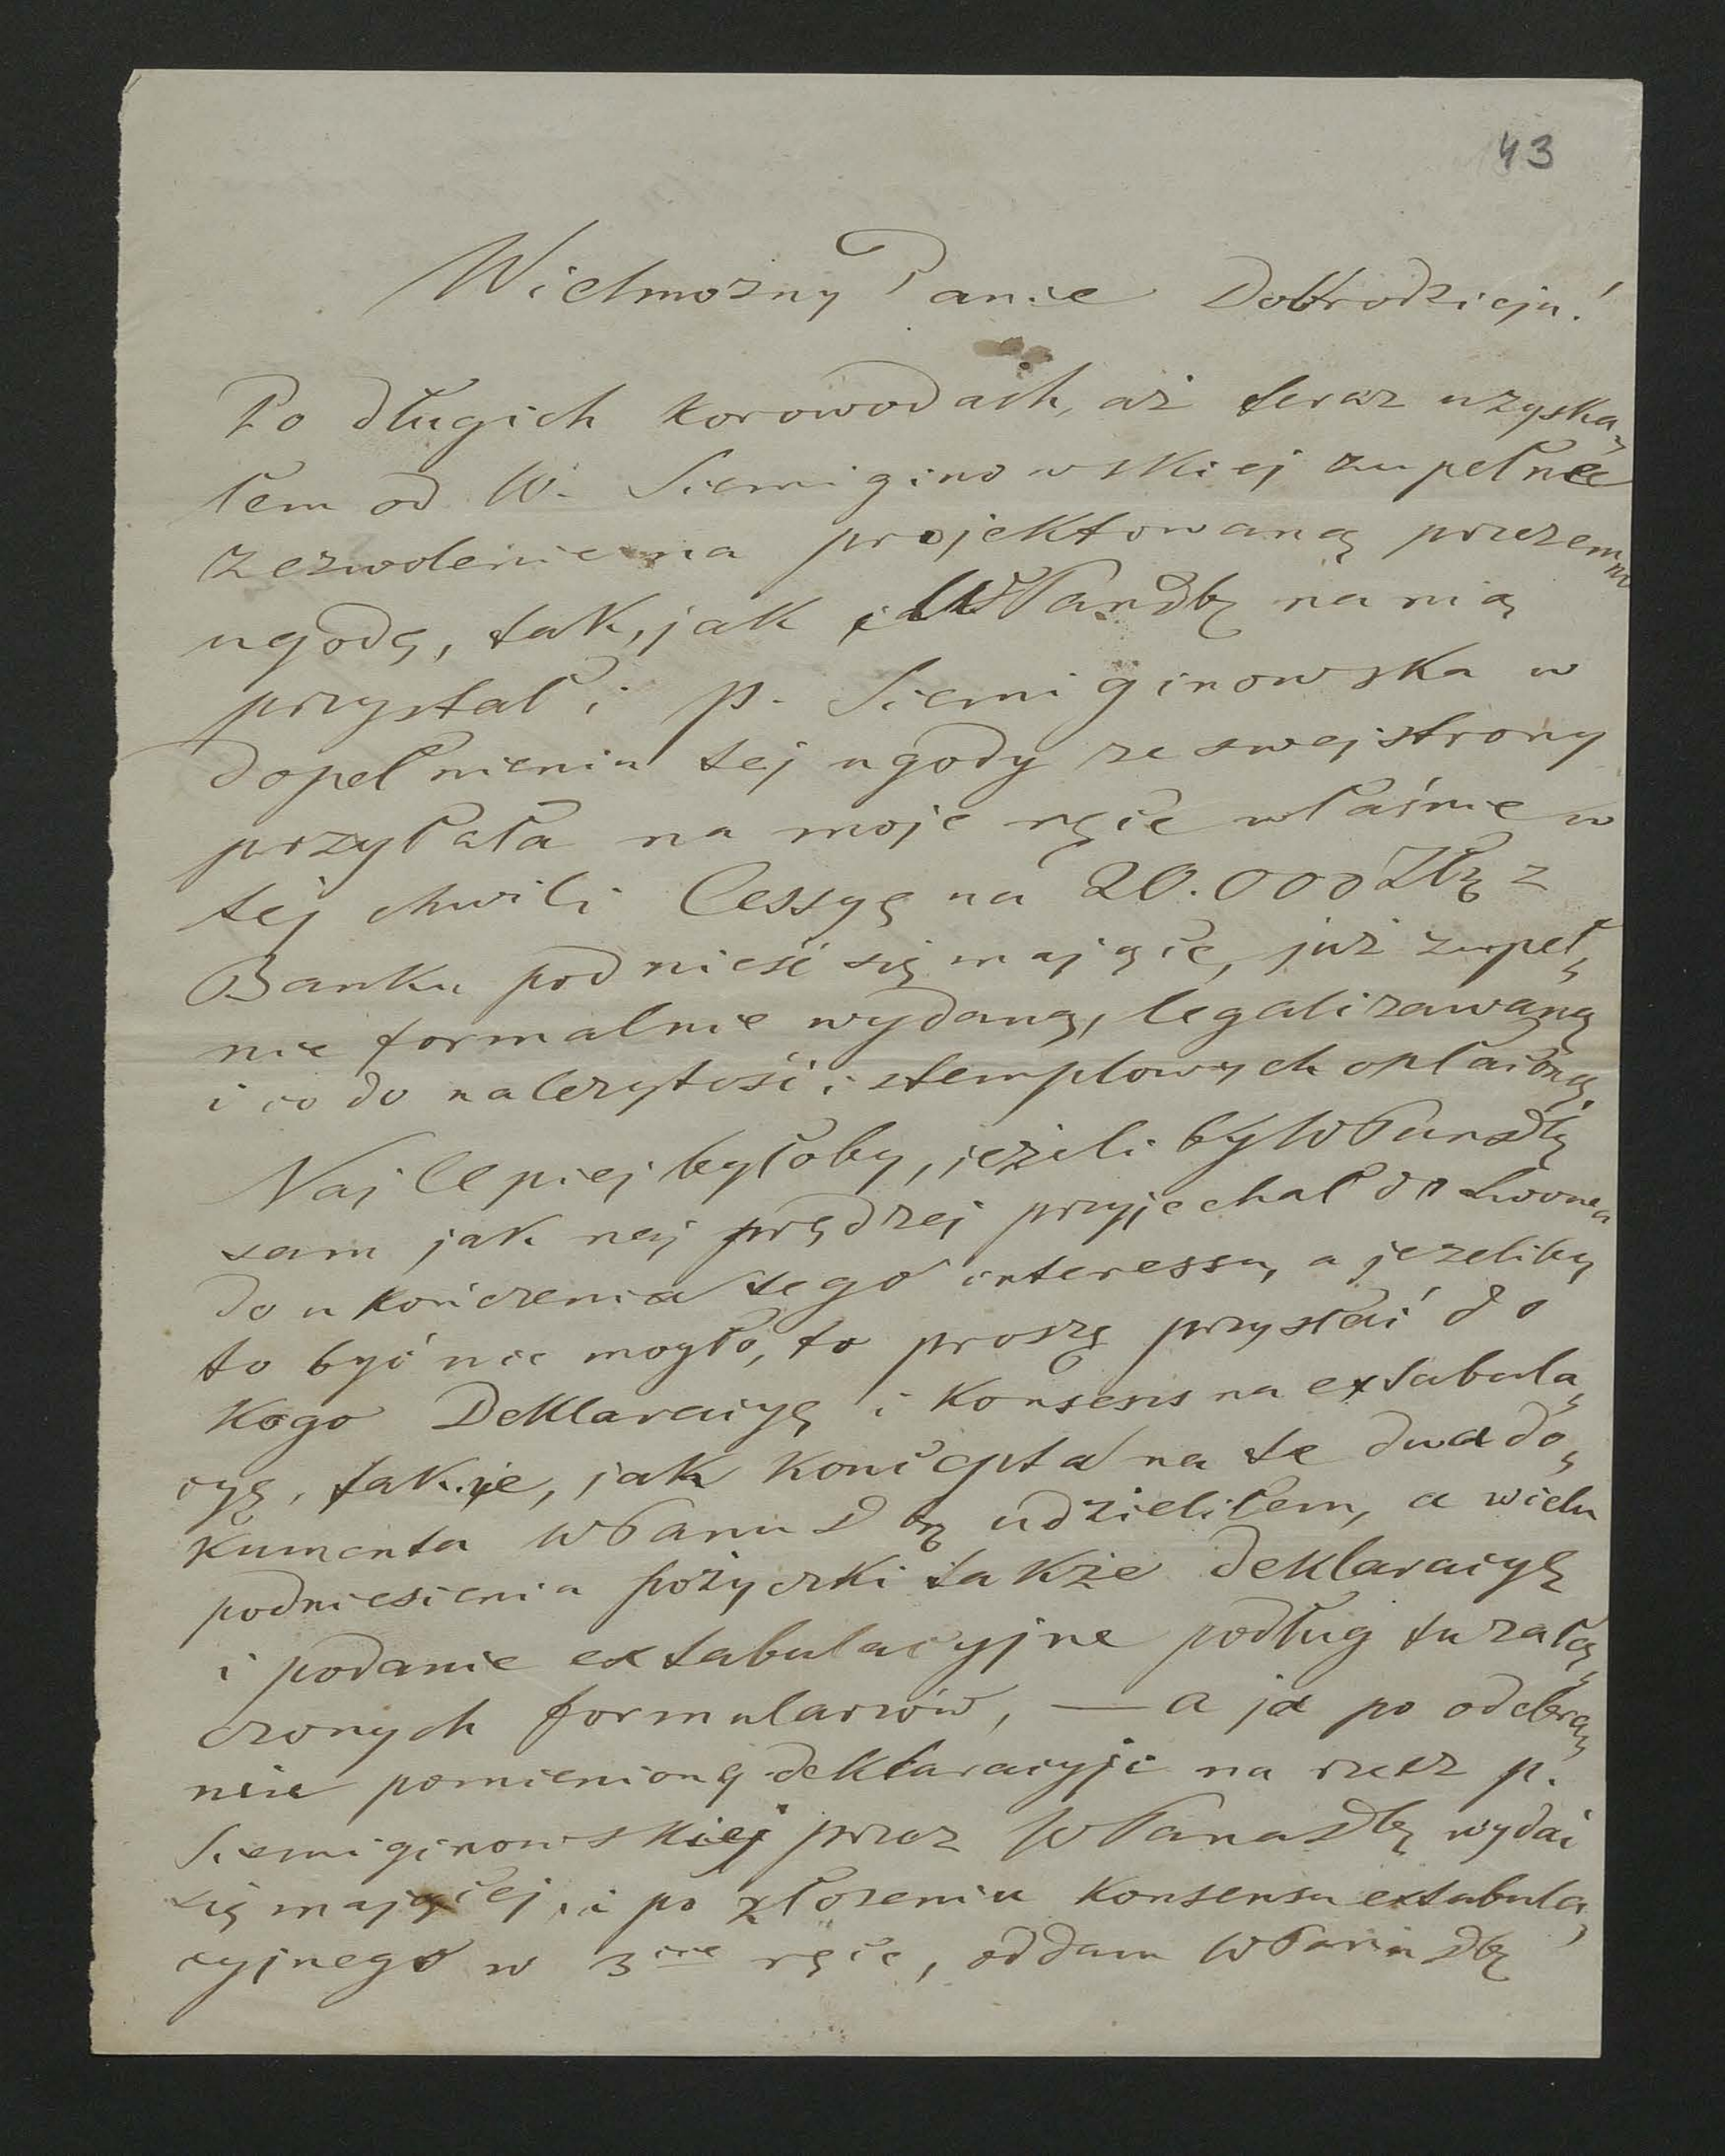 43
Wielmożny Panie Dobrodzieju!
Po długich korowodach, aż teraz uzyska-
łem od W. Siemiginowskiej zupełne
zezwolenie na projektowaną przezemn
ugodę, tak, jak i WPan Db na nią
przystał i p. Siemiginowska w
dopełnieniu tej ugody ze swej strony
przyłała na moje ręce właśnie w
tej chwili Cessyę na 20.000 Złr z
Banku podnieść się mające, już zupeł-
nie formalnie wydaną, legalizawaną
i co do należytości stemplowych opłaconą.
Najlepiej byłoby, jeżeli by WPan Db
sam jak naj prędzej przyjechał do Lwowa
do ukończenia tego interessu, a jeżeliby
to być nie mogło, to proszę przysłać do
kogo Deklaracyę i Konsens na extabula-
cyę, takie, jak koncepta na te dwa do-
kumenta WPanu Db udzieliłem, a wcelu
podniesienia pożyczki także deklaracyę
i podanie extabulacyjne podług tu załą-
czonych formularzów, — a ja po odebra-
niu pomienioną deklaracyje na rzecz p.
Siemiginowskiej przez WPana Db wydać
się mającej, i po złożeniu Konsensu extabula-
cyjnego w 3cie ręce, oddam WPanu Db